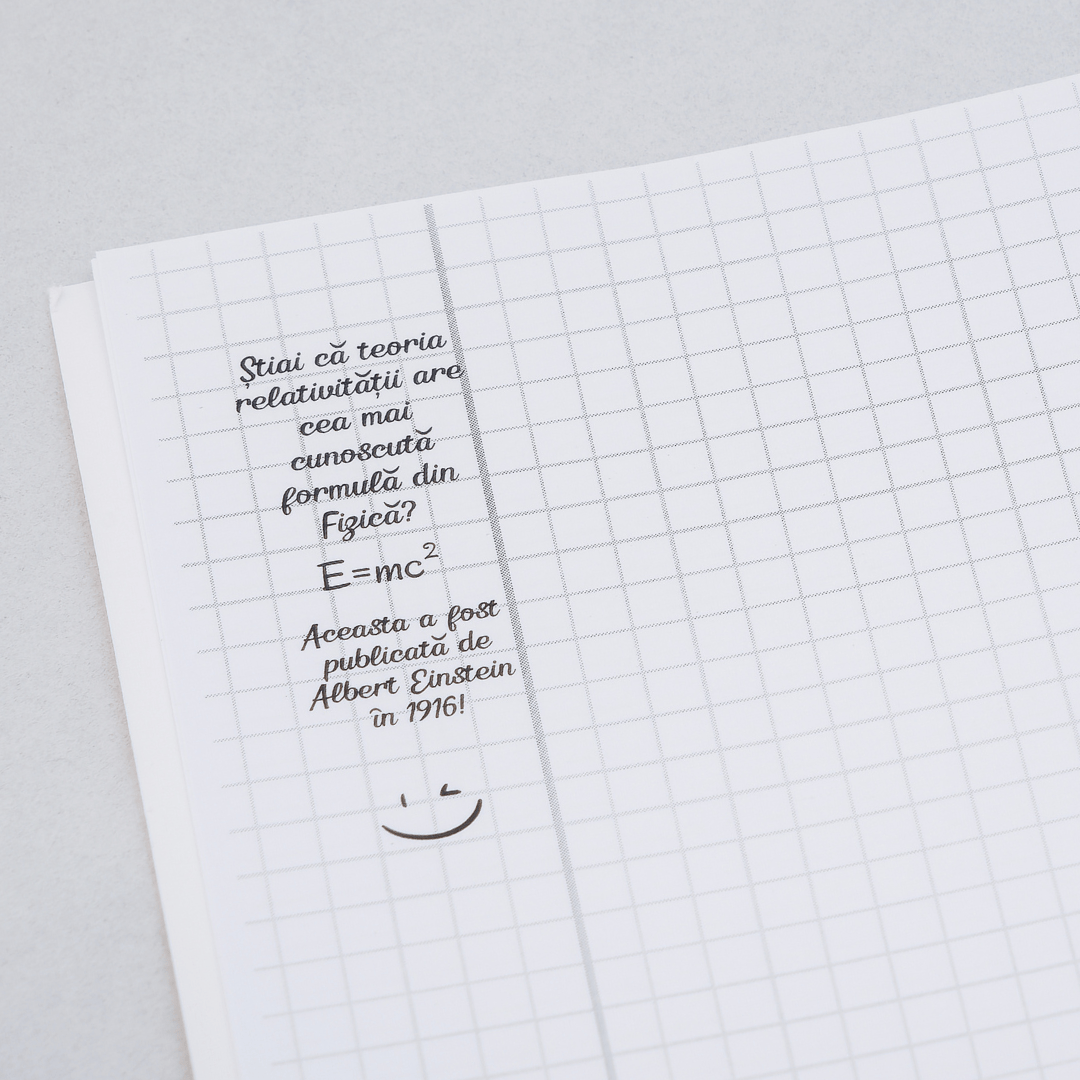 Știai că teoria
relativității are
cea mai
cunoscută
formulă din
Fizică?
E=mc²
Aceasta a fost
publicată de
Albert Einstein
în 1916!